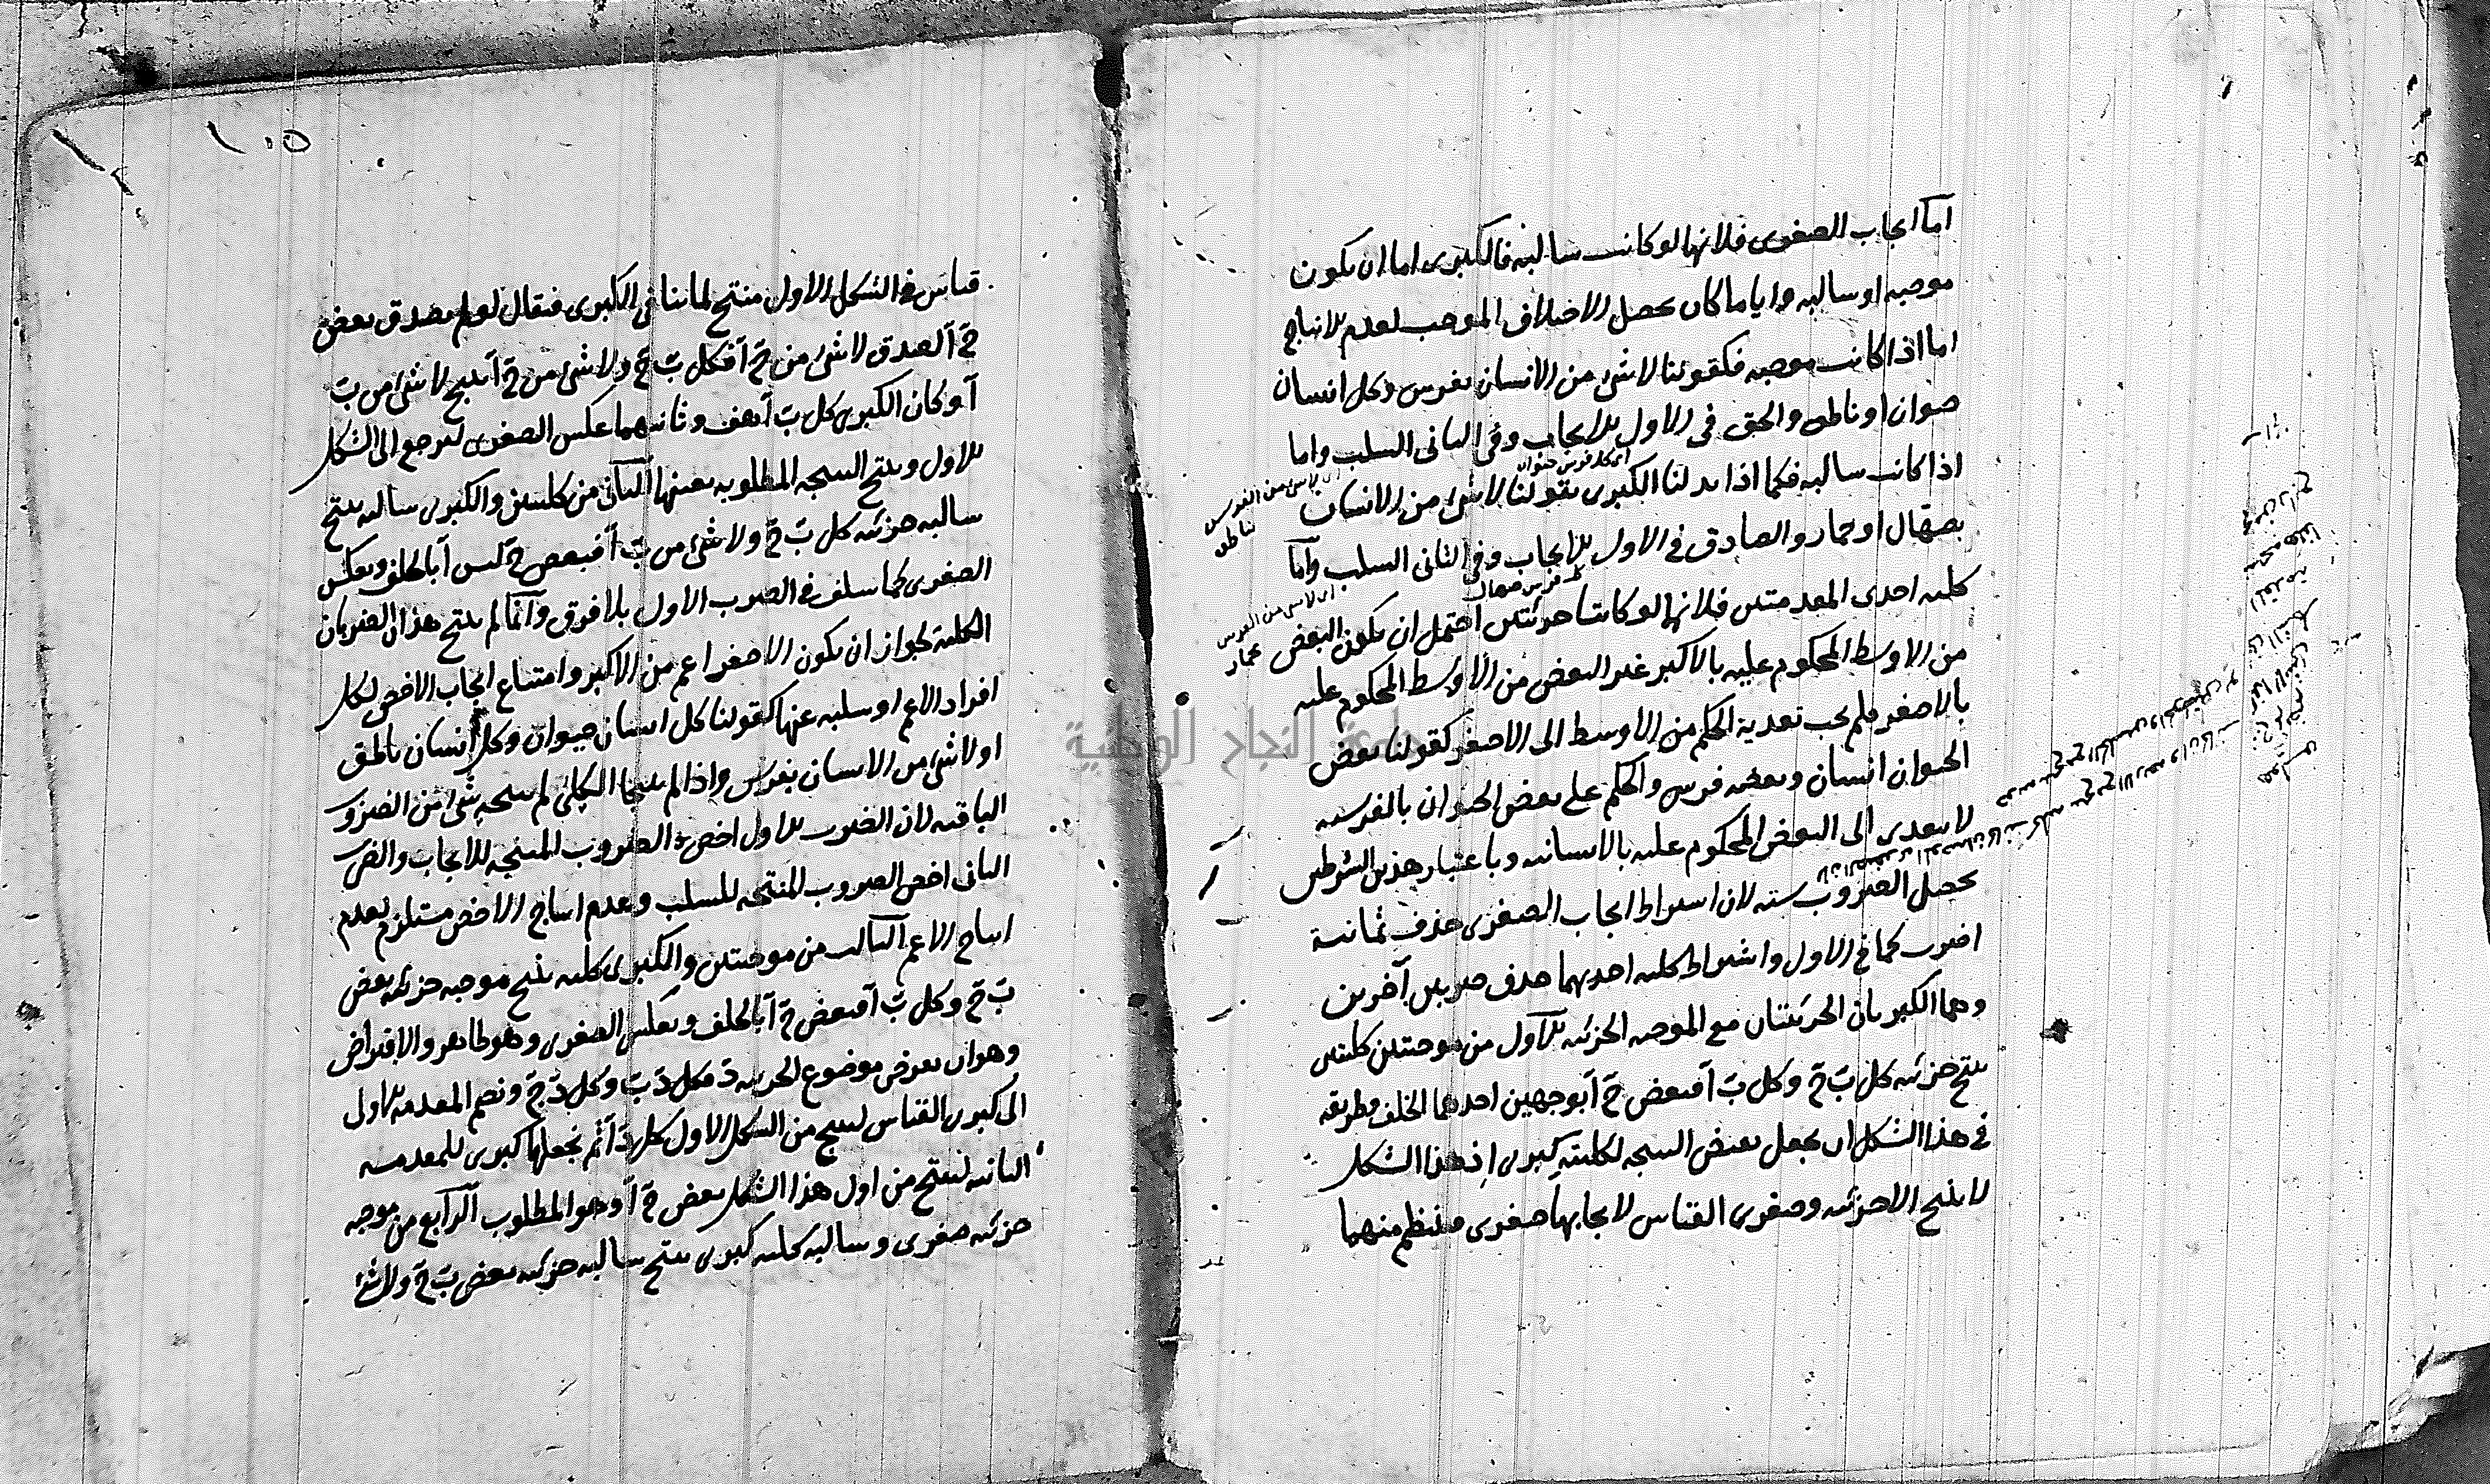 اما ايجاب الصغرى فلانها لو كانت سالبة فالكبرى اما ان يكون
موجبه او سالبه وايا ما كان يحصل الاختلاف الموجب لعدم الانتاج
اما اذا كانت موجبه فكقولنا لا شئ من الانسان بفرس وكل انسان
حيوان او ناطق والحق فى الاول الايجاب وفى الثانى السلب واما
اى كل فرس حيوان
اى لا شئ من الفرس بناطق
اذا كانت سالبه فكما اذا بدلنا الكبرى بقولنا لا شئ من الانسان
بصهال او حمار والصادق فى الاول الايجاب وفى الثانى السلب واما
كل فرس صهال
اى لا شئ من الفرس بحمار
كليه احدى المقدمتين فلانها لو كانتا جزئيتين احتمل ان يكون البعض
من الاوسط المحكوم عليه بالاكبر غير البعض من الاوسط المحكوم عليه
بالاصغر فلم يجب تعدية الحكم من الاوسط الى الاصغر كقولنا بعض
الحيوان انسان وبعضه فرس والحكم على بعض الحيوان بالفرسيه
لا يتعدى الى البعض المحكوم عليه بالانسانيه وباعتبار هذين الشرطين
يحصل الضروب سته لان اشتراط ايجاب الصغرى حذف ثمانية
اضرب كما فى الاول واشتراط كليه احديهما حذف ضربين آخرين
وهما الكبريان الجزئيتان مع الموجبه الجزئيه الاول من موجبتين كليتين
ينتج جزئيه كل ب ج وكل ب آ فبعض ج آ بوجهين احدهما الخلف وطريقه
فى هذا الشكل ان يجعل نقيض النتيجه لكليته كبرى اذ هذا الشكل
لا ينتج الا جزئيه وصغرى القياس لايجابها صغرى فينتظم منهما
جامعة النجاح الوطنية
١٠٥
قياس فى الشكل الاول منتج لما ينافى الكبرى فيقال لو لم يصدق بعض
ج آ لصدق لا شئ من ج آ فكل ب ج ولا شئ من ج آ ينتج لا شئ من ب
آ وكان الكبرى كل ب آ هف وثانيهما عكس الصغرى ليرجع الى الشكل
الاول وينتج النتيجه المطلوبه بعينها الثانى من كليتين والكبرى سالبه ينتج
سالبه جزئيه كل ب ج ولا شئ من ب آ فبعض ج ليس آ بالخلف وبعكس
الصغرى كما سلف فى الضرب الاول بلا فرق وانما لم ينتج هذان الضربان
الكلية لجواز ان يكون الاصغر اعم من الاكبر وامتناع ايجاب الاخص لكل
افراد الاعم او سلبه عنها كقولنا كل انسان حيوان وكل انسان ناطق
او لا شئ من الانسان بفرس واذا لم ينتجا الكلى لم ينتجه شئ من الضروب
الباقيه لان الضرب الاول اخص الضروب المنتجه للايجاب والضرب
الثانى اخص الضروب المنتجه للسلب وعدم انتاج الاخص مستلزم لعدم
انتاج الاعم الثالث من موجبتين والكبرى كليه ينتج موجبه جزئيه بعض
ب ج وكل ب آ فبعض ج آ بالخلف وبعكس الصغرى وهو ظاهر والافتراض
وهو ان نفرض موضوع الجزئيه د فكل د ب وكل د ج ونضم المقدمه الاولى
الى كبرى القياس لينتج من الشكل الاول كل د آ ثم نجعلها كبرى للمقدمه
الثانيه لينتج من اول هذا الشكل بعض ج آ وهو المطلوب الرابع من موجبه
جزئيه صغرى وسالبه كليه كبرى ينتج سالبه جزئيه بعض ب ج ولا شئ